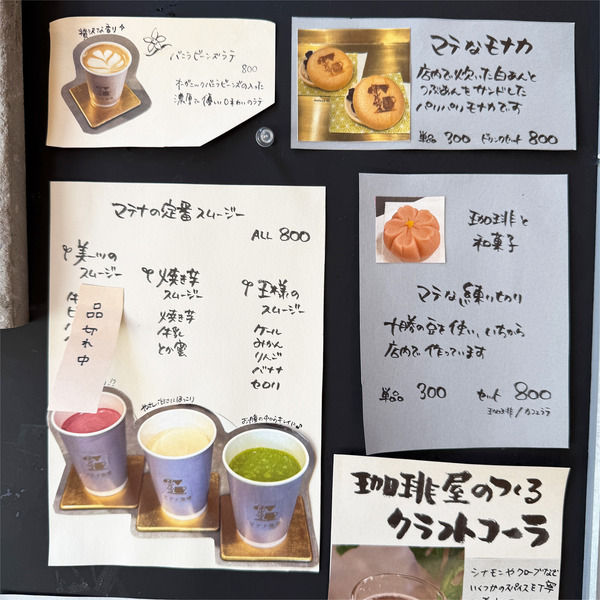 贅沢な香り
バニラビーンズラテ
800
オーガニックバニラビーンズの入った
濃厚で優しい味わいのラテ
マテなモナカ
店内で炊いた白あんと
つぶあんをサンドした
パリパリモナカです
単品 300 ドリンクセット 800
マテナの定番スムージー
ALL 800
スムージー
品切れ中
焼き芋
スムージー
焼き芋
牛乳
とか蜜
王様の
スムージー
ケール
みかん
りんご
バナナ
セロリ
やさしい甘さにほっこり
お腹の中からキレイに♪
珈琲と
和菓子
マテな練りきり
十勝の豆を使い、いちから
店内で作っています
単品 300 セット 800
珈琲/カフェラテ
珈琲屋のつくる
クラフトコーラ
シナモンやクローブなど
いくつかのスパイスを丁寧